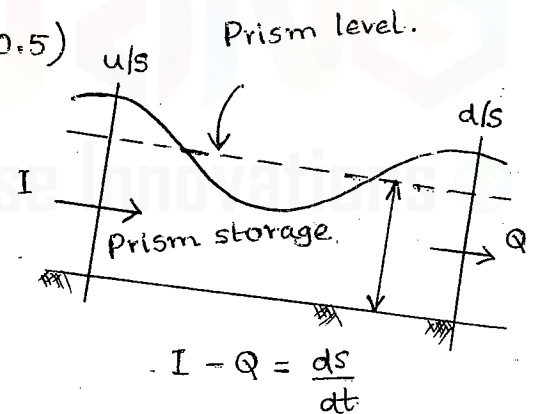 0.5)
Prism level.
u/s
d/s
I
Prism storage.
Q
I - Q = ds/dt